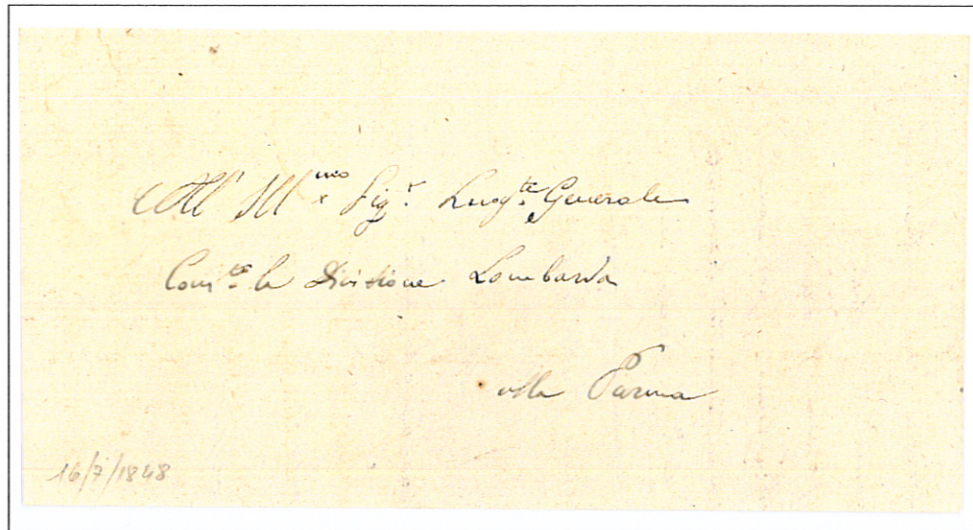 All' Ill.mo Sig.r Luog.te Generale
Com.te la Divisione Lombarda
alla Parma
16/7/1848